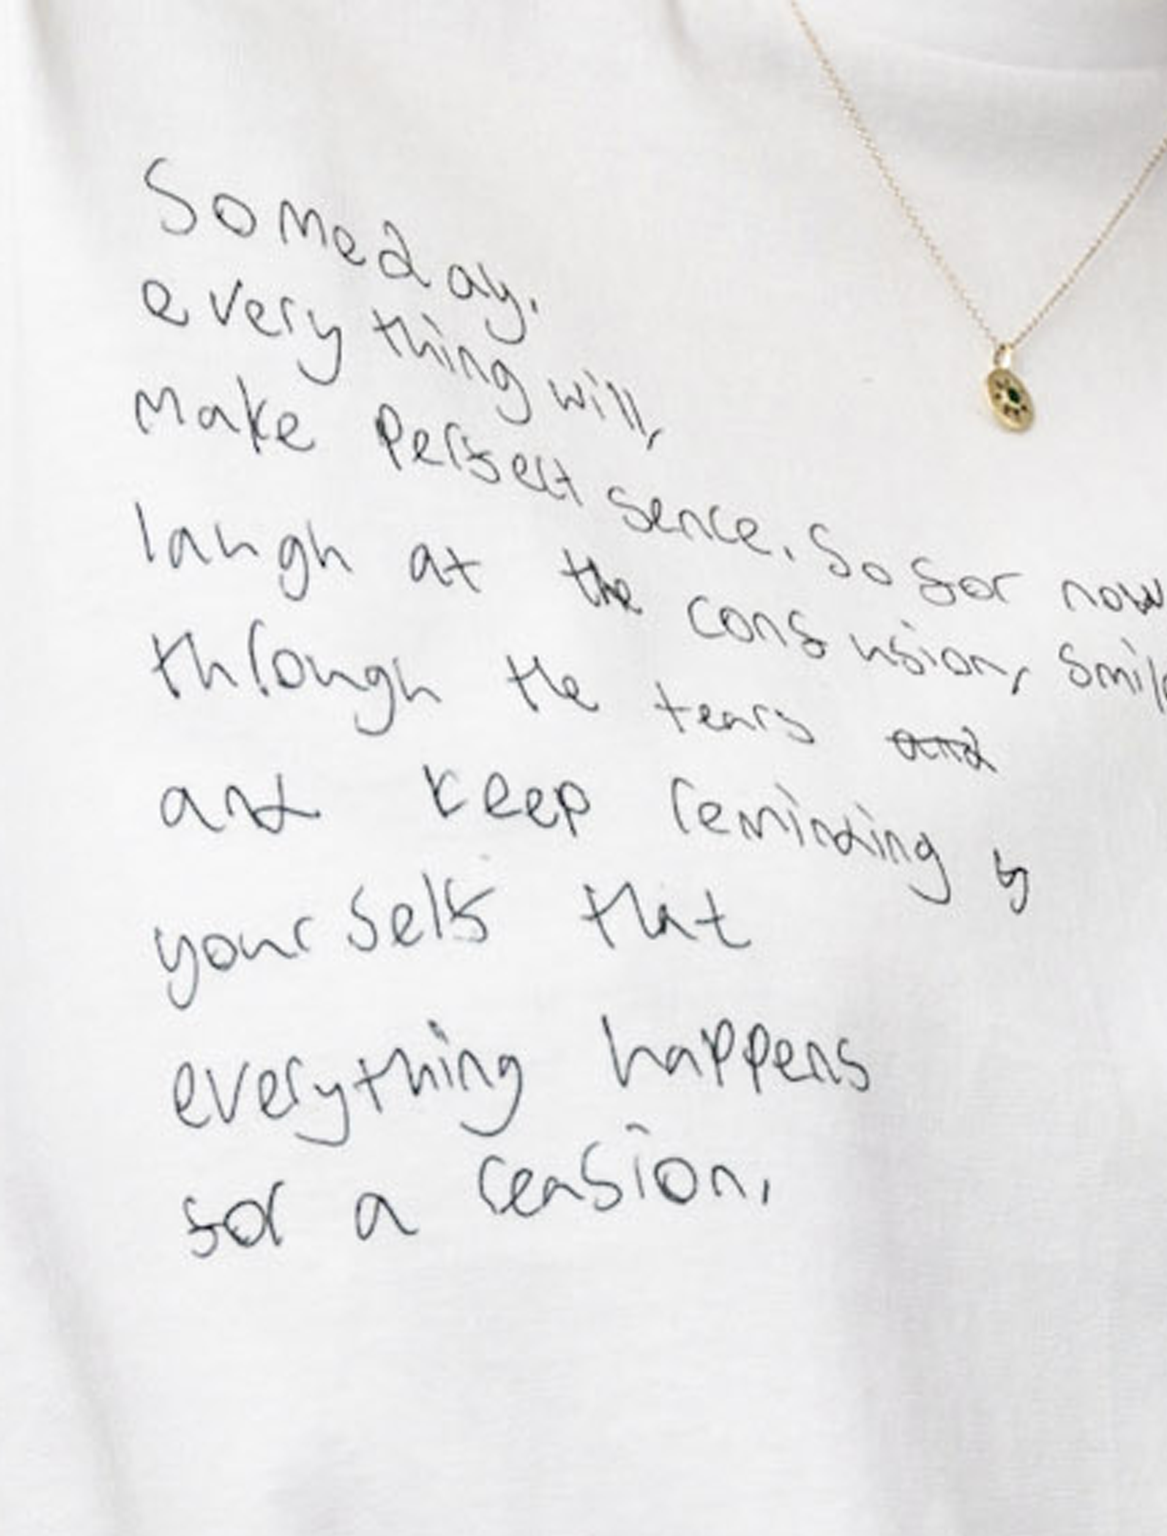 Someday.
everything will,
make perfect sence. So for now
laugh at the confusion, smile
through the tears and
and keep reminding y
yourself that
everything happens
for a reasion,